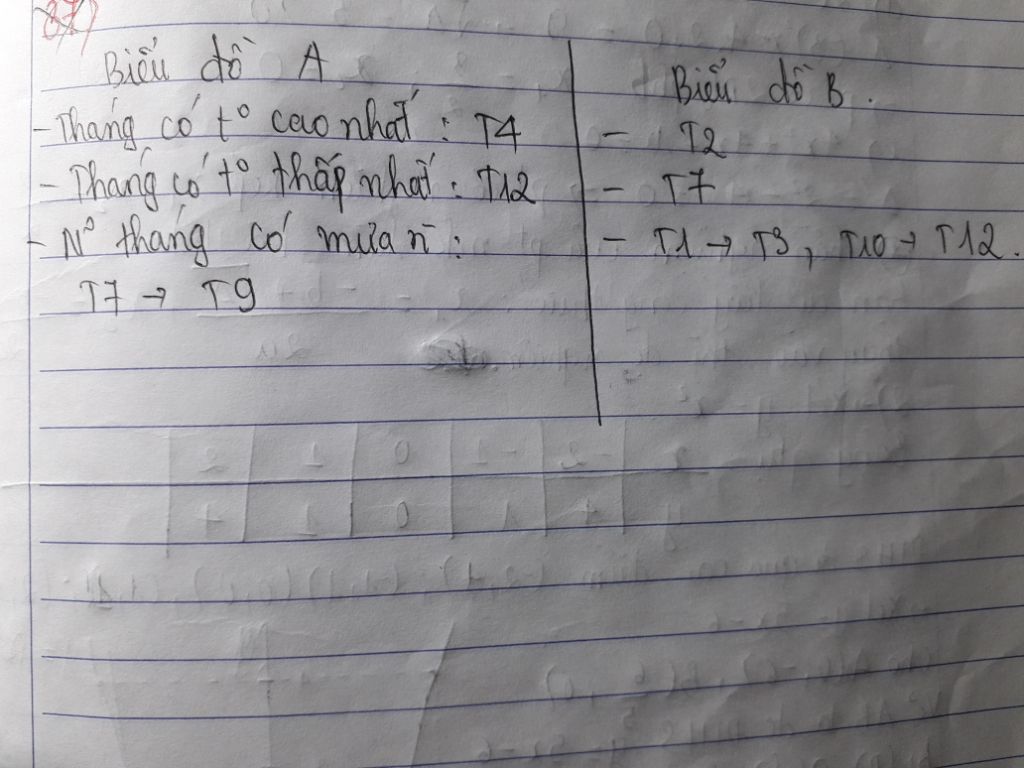 Biểu đồ A
- Tháng có t° cao nhất : T4
- Tháng có t° thấp nhất : T12
- N° tháng có mưa n :
T7 → T9
Biểu đồ B .
- T2
- T7
- T1 → T3 , T10 → T12 .